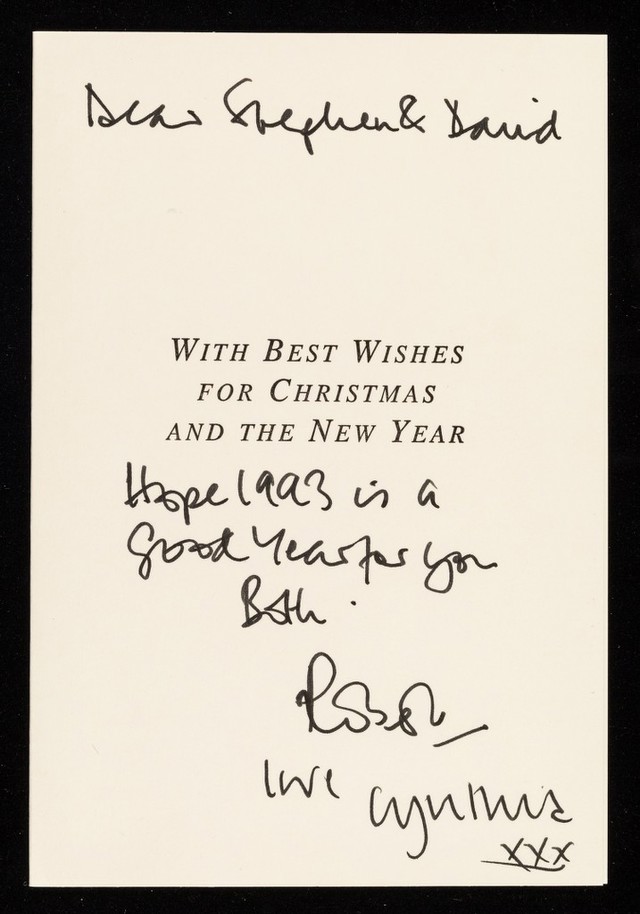 Dear Stephen & David
WITH BEST WISHES
FOR CHRISTMAS
AND THE NEW YEAR
Hope 1993 is a
good Year for you
Both.
love Cynthia
xxx